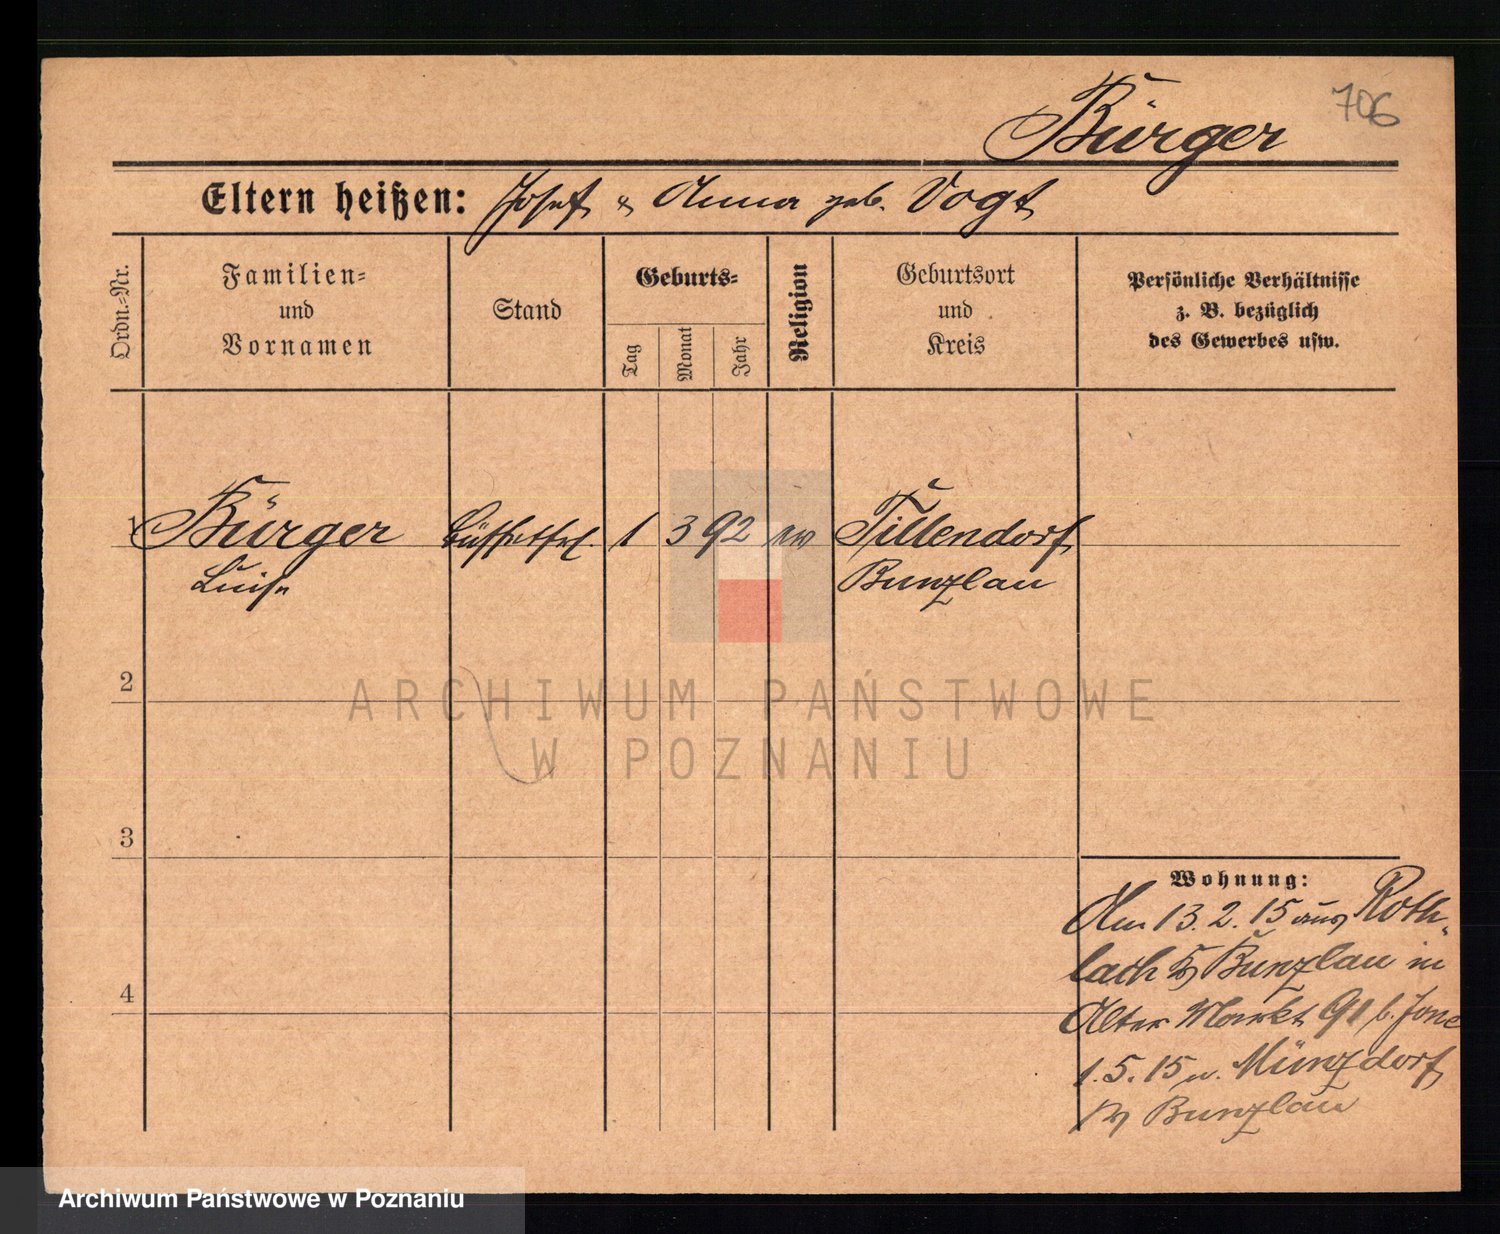 706
Bürger
Eltern heißen: Josef & Anna geb. Vogt
Ordn.=Nr.
Familien=
und
Vornamen
Stand
Geburts=
Tag
Monat
Jahr
Religion
Geburtsort
und
Kreis
Persönliche Verhältnisse
z. B. bezüglich
des Gewerbes usw.
1 Bürger Büffettfrl. 1 3 92 ev Tillendorf
Luise Bunzlau
2
ARCHIWUM PAŃSTWOWE
W POZNANIU
3
Wohnung:
Am 13.2.15 aus Roth-
lach Bunzlau in
4
Alter Markt 91 b.
1.5.15 n.
Bunzlau
Archiwum Państwowe w Poznaniu